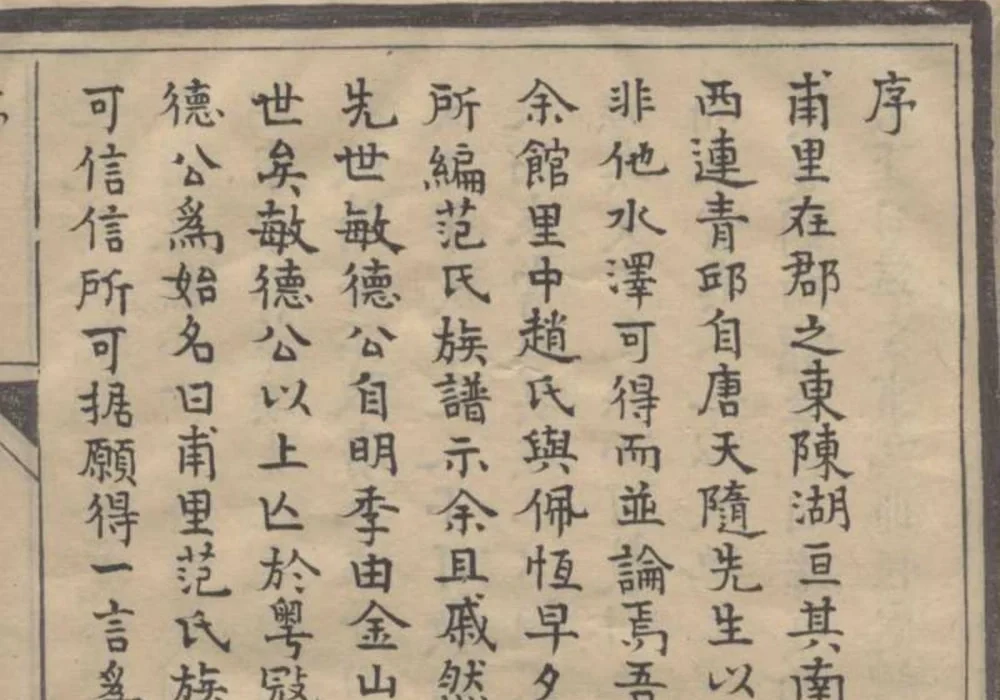 序
甫里在郡之東陳湖亘其南
西連青邱自唐天隨先生以
非他水澤可得而並論焉吾
余館里中趙氏與佩恒早夕
所編范氏族譜示余且戚然
先世敏德公自明季由金山
世矣敏德公以上亾於粤寇
德公爲始名曰甫里范氏族
可信信所可据願得一言爲